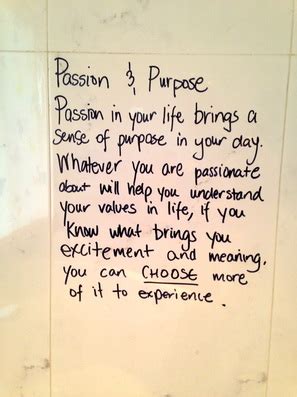 Passion & Purpose
Passion in your life brings a
sense of purpose in your day.
Whatever you are passionate
about will help you understand
your values in life, if you
know what brings you
excitement and meaning,
you can CHOOSE more
of it to experience.